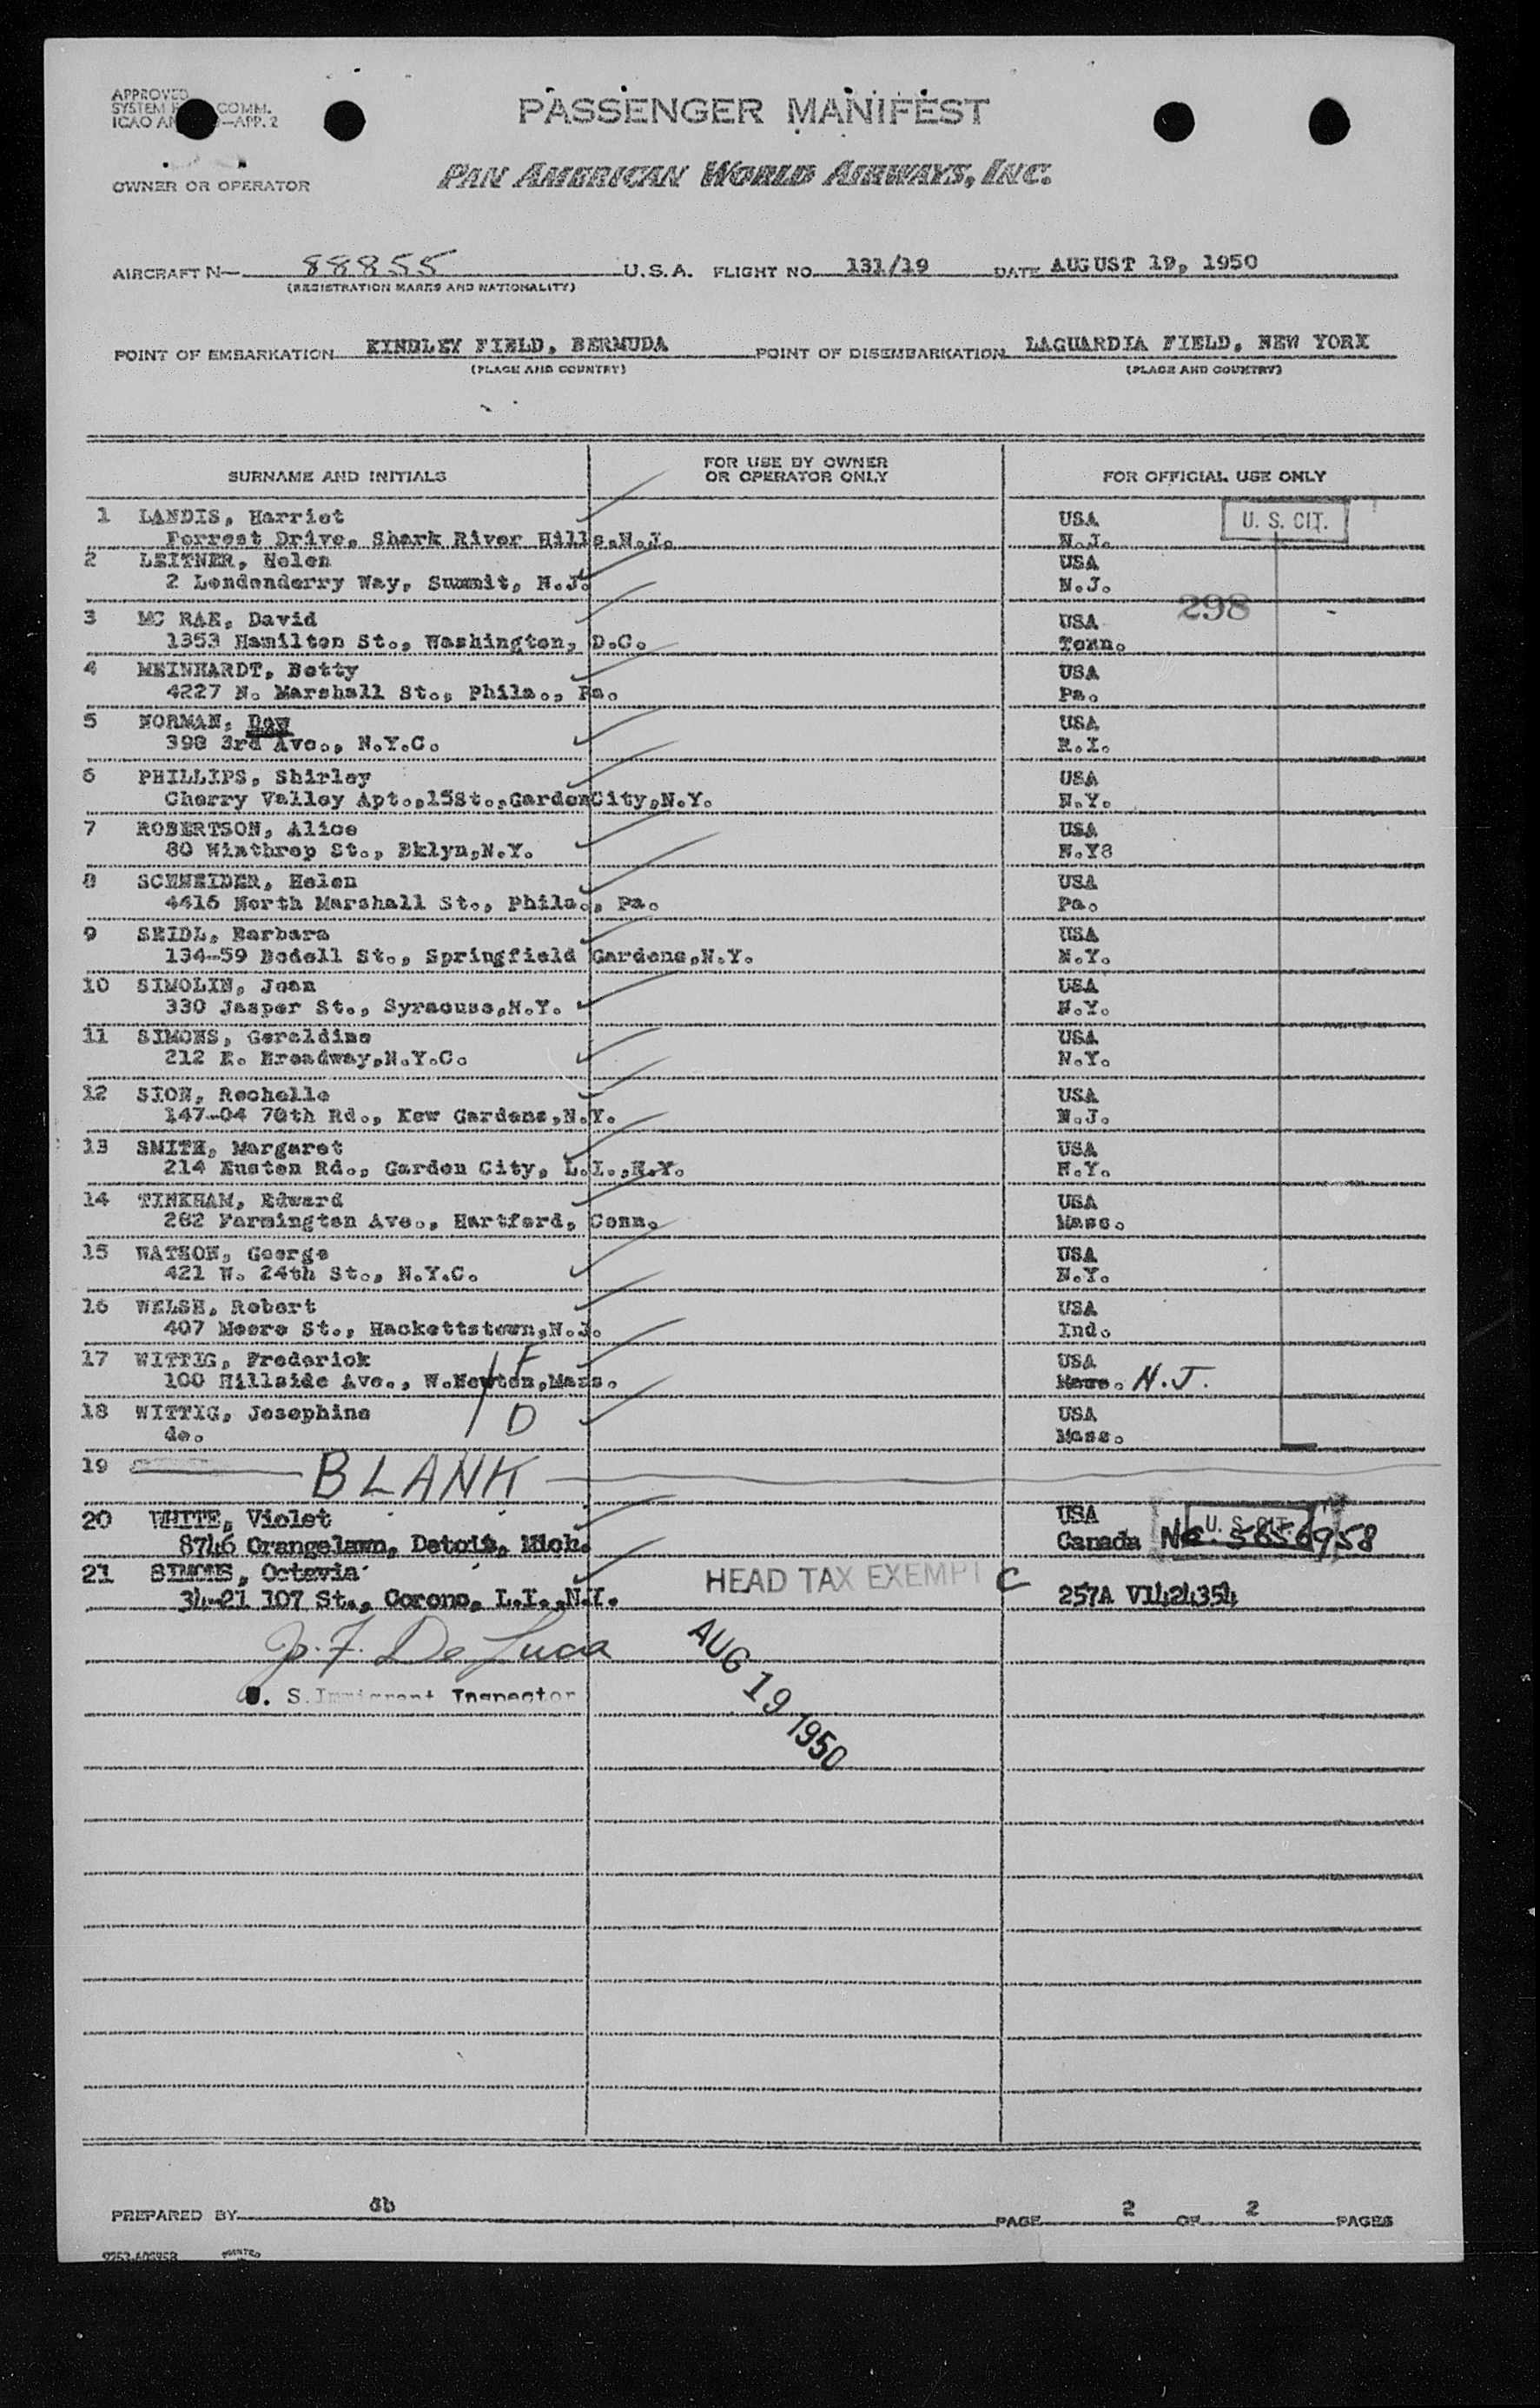 APPROVED
SYSTEM COMM.
ICAO —APP. 2
PASSENGER MANIFEST
PAN AMERICAN WORLD AIRWAYS, INC.
OWNER OR OPERATOR
AIRCRAFT N— 88855 U.S.A. FLIGHT NO. 131/19 DATE AUGUST 19, 1950
(REGISTRATION MARKS AND NATIONALITY)
POINT OF EMBARKATION KINDLEY FIELD, BERMUDA POINT OF DISEMBARKATION LAGUARDIA FIELD, NEW YORK
(PLACE AND COUNTRY) (PLACE AND COUNTRY)
SURNAME AND INITIALS FOR USE BY OWNER OR OPERATOR ONLY FOR OFFICIAL USE ONLY
1 LANDIS, Harriet USA U. S. CIT.
Forrest Drive, Shark River Hills,N.J. N.J.
2 LEITNER, Helen USA
2 Londonderry Way, Summit, N.J. N.J.
298
3 MC RAE, David USA
1353 Hamilton St., Washington, D.C. Tenn.
4 MEINHARDT, Betty USA
4227 N. Marshall St., Phila., Pa. Pa.
5 NORMAN, USA
398 3rd Ave., N.Y.C. R.I.
6 PHILLIPS, Shirley USA
Cherry Valley Apt.,15St.,GardenCity,N.Y. N.Y.
7 ROBERTSON, Alice USA
80 Winthrop St., Bklyn,N.Y. N.Y8
8 SCHNEIDER, Helen USA
4415 North Marshall St., Phila., Pa. Pa.
9 SEIDL, Barbara USA
134-59 Bedell St., Springfield Gardens,N.Y. N.Y.
10 SIMOLIN, Joan USA
330 Jasper St., Syracuse,N.Y. N.Y.
11 SIMONS, Geraldine USA
212 E. Broadway,N.Y.C. N.Y.
12 SION, Rochelle USA
147-04 78th Rd., Kew Gardens,N.Y. N.J.
13 SMITH, Margaret USA
214 Euston Rd., Garden City, L.I.,N.Y. N.Y.
14 TINKHAM, Edward USA
282 Farmington Ave., Hartford, Conn. Mass.
15 WATSON, George USA
421 W. 24th St., N.Y.C. N.Y.
16 WELSH, Robert USA
407 Moore St., Hackettstown,N.J. Ind.
17 WITTIG, Frederick F USA
100 Hillside Ave., W.Newton,Mass. Mass. N.J.
18 WITTIG, Josephine D USA
do. Mass.
19 BLANK
20 WHITE, Violet USA U. S. CIT.
8746 Orangelawn, Detoit, Mich. Canada
21 SIMONS, Octavia HEAD TAX EXEMPT C
34-21 107 St., Corono, L.I.,N.Y. 257A V1424354
J. F. De Luca
U. S. Immigrant Inspector
AUG 19 1950
PREPARED BY PAGE 2 OF 2 PAGES